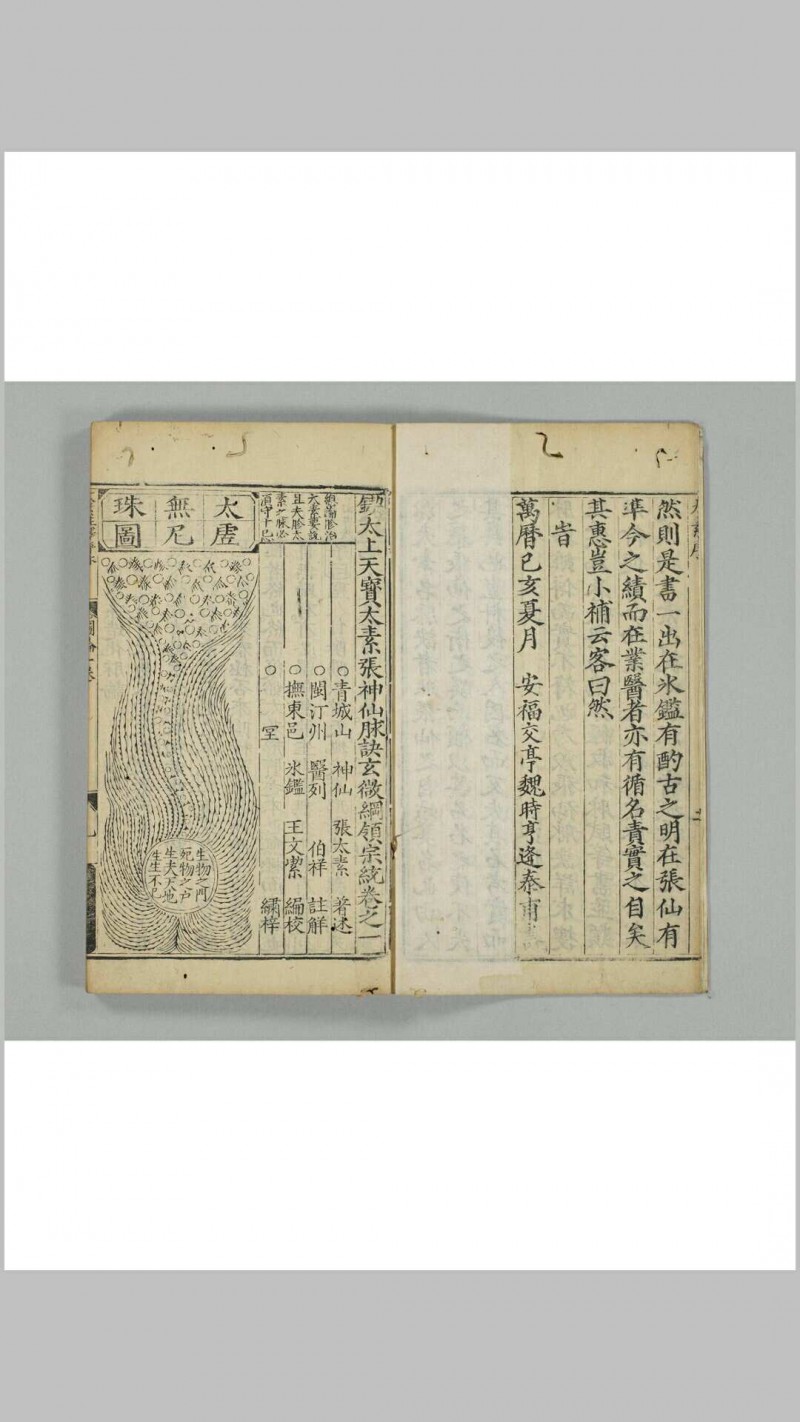 然則是書一出在氷鑑有酌古之明在張仙有
準今之績而在業醫者亦有循名責實之目矣
其惠豈小補云客曰然
旹
萬曆己亥夏月　安福交亭魏時亨逢泰甫
鐫太上天寶太素張神仙脉訣玄微綱領宗統卷之一
○青城山　神仙　張太素　著述
○閩汀州　醫列　伯祥　註解
○撫東邑　氷鑑　王文㓗　編校
○　繡梓
太虗
無凡
珠圖
生物之門
死物之户
生夫天地
生生不已